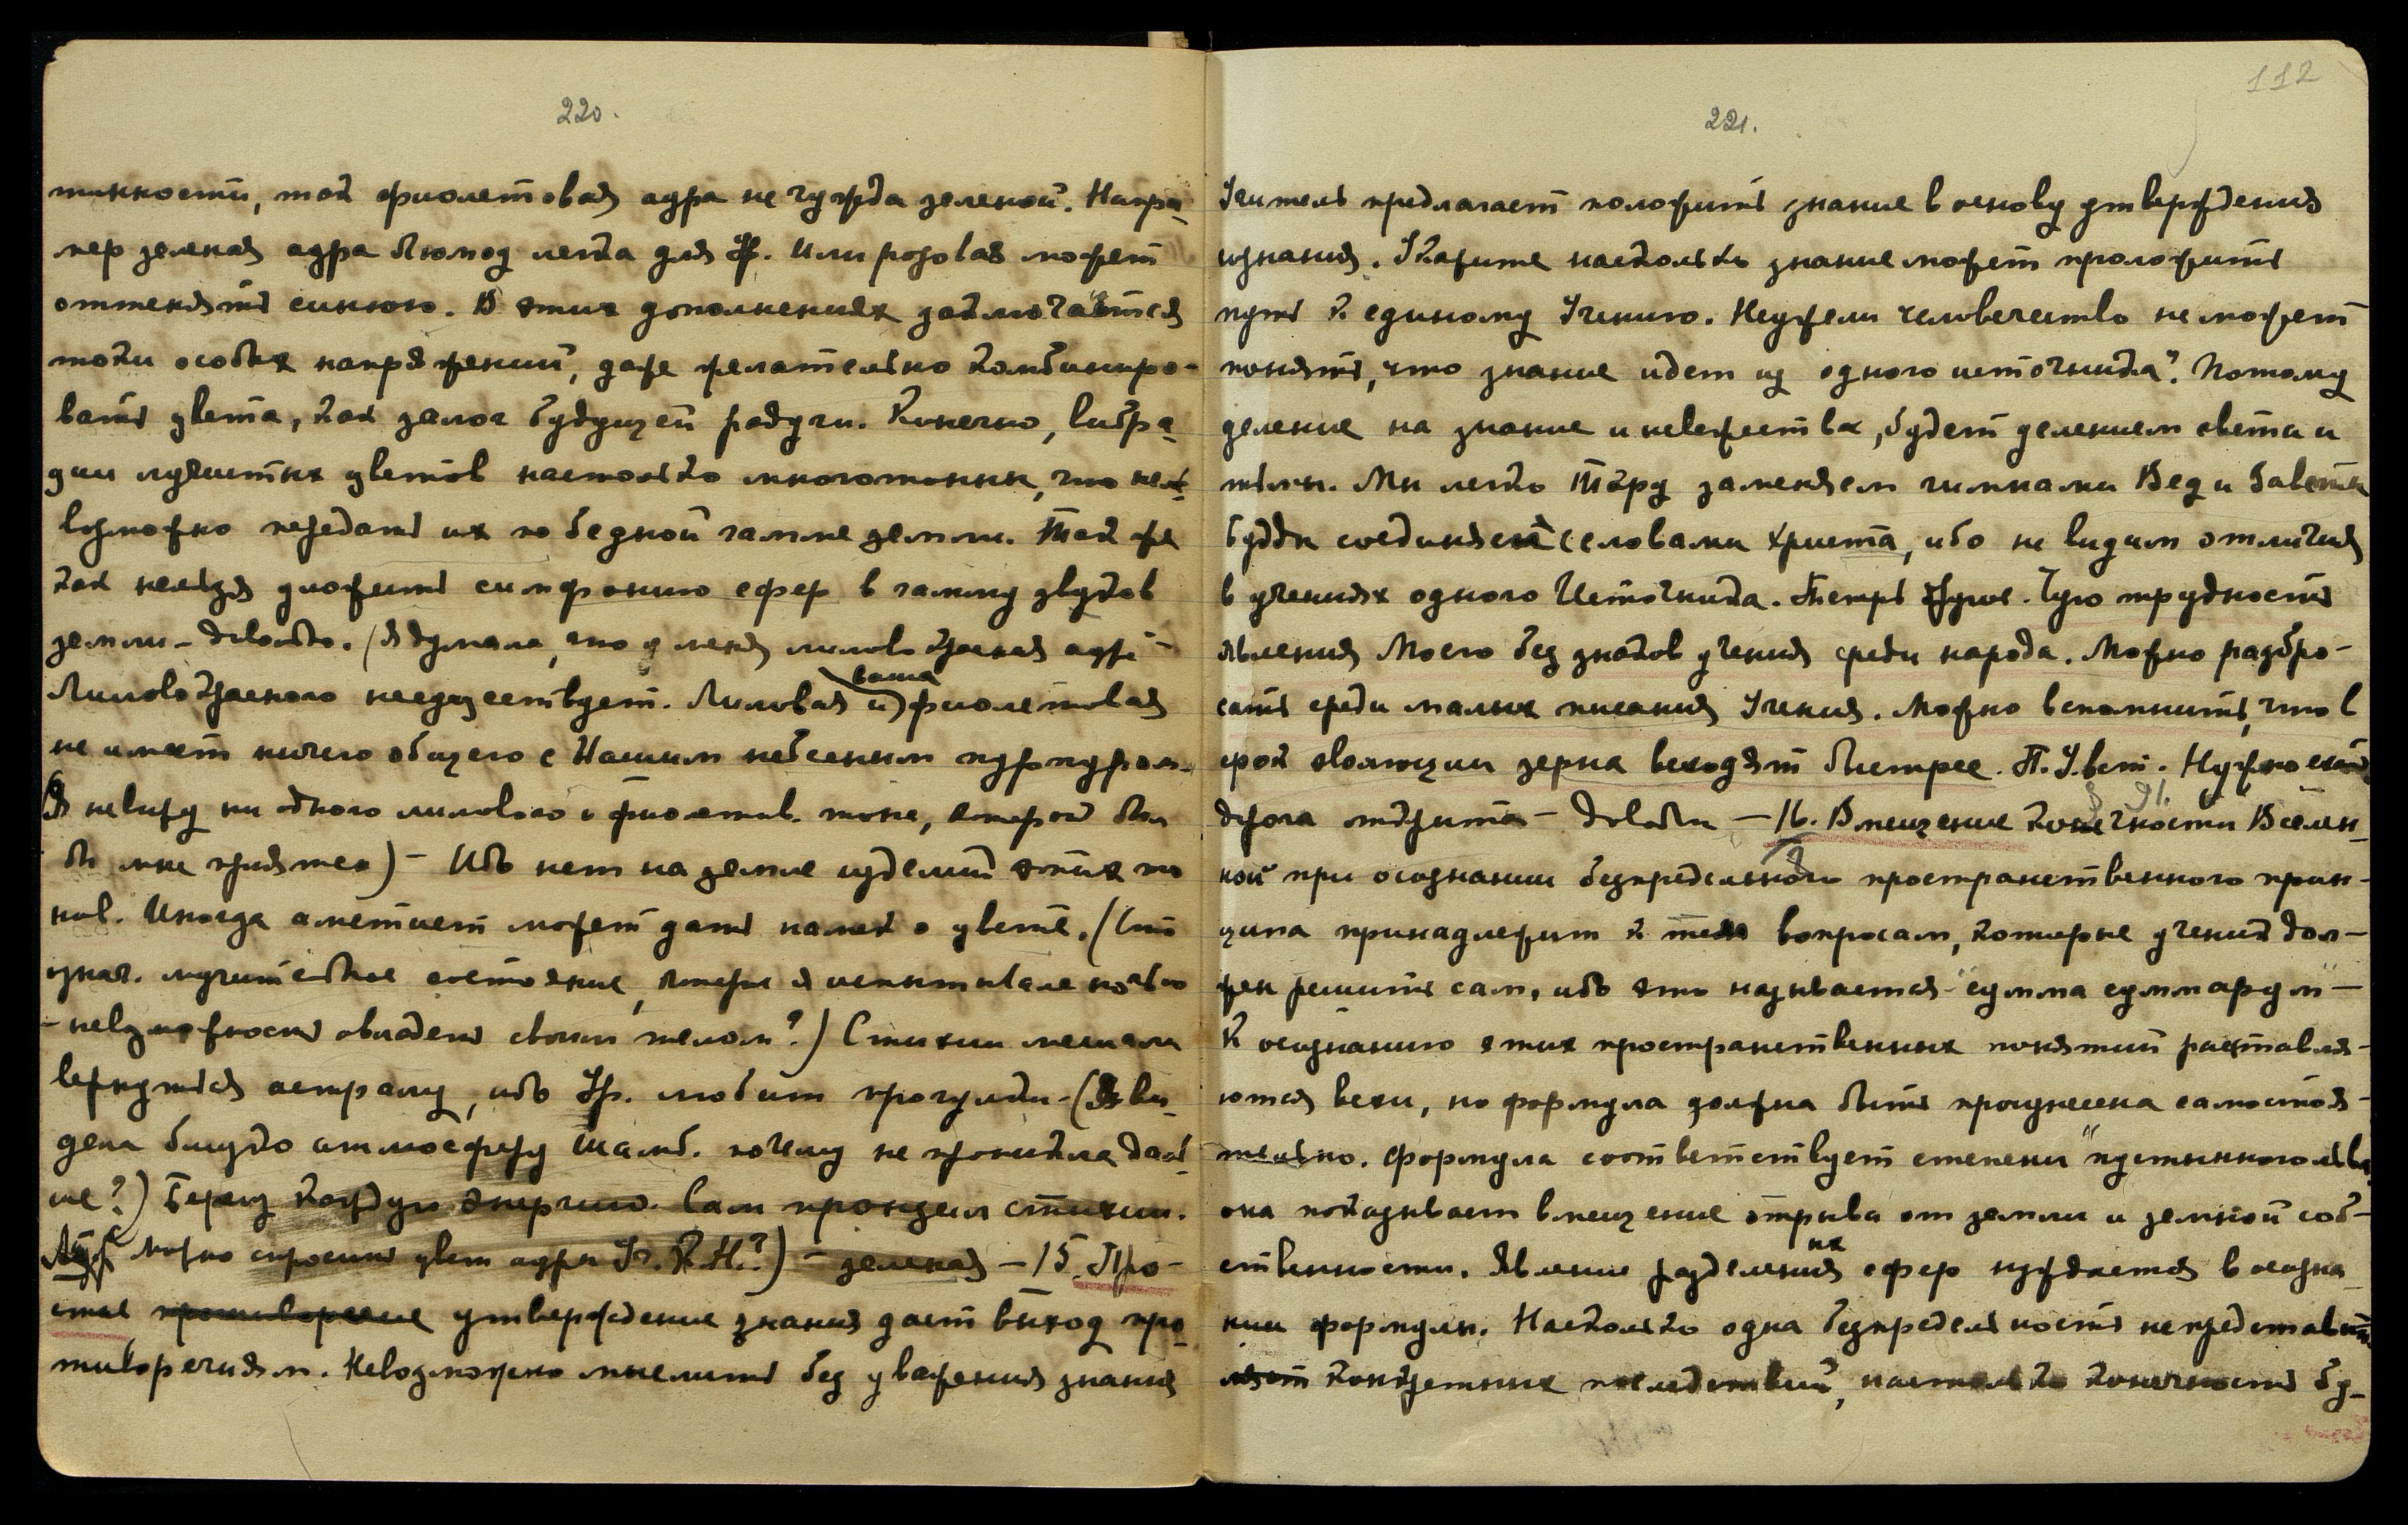 220.
тинности, так фиолетовая аура не чужда зеленой. Напри-
мер зеленая аура Блюмод легка для Ур. Или розовая может
оттенять синюю. В этих дополнениях заключаются
токи особых напряжений, даже желательно комбиниро-
вать цвета, как залог будущей радуги. Конечно, вибра-
ции лучистых цветов настолько многотонны, что не
возможно передать их по бедной гамме земли. Так же
как нельзя уложить симфонию сфер в гамму звуков
земли – довольно. (Я думала, что у меня лилово красная аура –
Лилово красного не существует. Лиловая и ваша фиолетовая
не имеет ничего общего с Нашим небесным пурпуром.
(Я не вижу ни одного лилового и фиолетов. тона, который был
бы мне приятен) – Ибо нет на земле изделий этих то
нов. Иногда аметист может дать намек о цвете. (Что
означ. мучительное состояние, которое я испытывала ночью
– невозможность овладеть своим телом?) Стихии мешали
вернуться астралу, ибо Ур. любит прогулки – (Я ви-
дела близко атмосферу Шамб. почему не проникла даль-
ше?) Берегу каждую энергию. Сам проведи стихии.
Можно спросить цвет ауры Уч. К.Н.?) – зеленая – 15. Про-
стое противоречие утверждение знания дает выход про-
тиворечиям. Невозможно мыслить без уважения знания
112
221.
Учитель предлагает положить знание в основу утверждения
сознания. Укажите насколько знание может проложить
путь к единому Учению. Неужели человечество не может
понять, что знание идет из одного источника? Потому
деление на знание и невежества, будет делением света и
тьмы. Мы легко Тору заменяем гимнами Вед и Заветы
Будды соединяем с словами Христа, ибо не видим отличия
в учениях одного Источника. Теперь другое. Чую трудность
явления Моего без знаков учения среди народа. Можно разбро-
сать среди малых писания Учения. Можно вспомнить, что в
срок эволюции зерна всходят быстрее. П. У. вет. Нужно
дорога открыта – довольно – 16. Вмещение конечности Вселен-
§ 91.
ной при осознании безпредельного пространственного прин-
ципа принадлежит к тем вопросам, которые ученик дол-
жен решить сам, ибо это называется – "сумма суммарум" –
К осознанию этих пространственных понятий расставля-
ются вехи, но формула должна быть произнесена самостоя-
тельно. Формула соответствует степени "пустынного льва
она показывает вмещение отрыва от земли и земной соб-
ственности. Явление разделения их сфер нуждается в осозна-
нии формулы. Насколько одна безпредельность не представ
ляет конкретных последствий, настолько конечность бу-